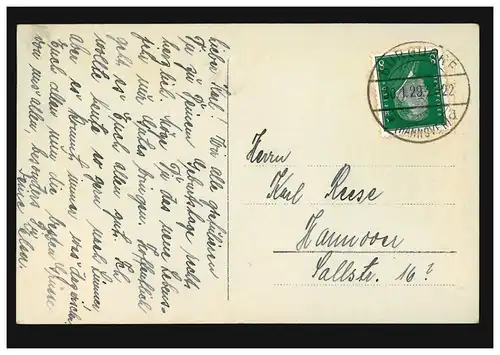 Lieber Karl! Wir alle gratulieren
Dir zu Deinem Geburtstage recht
herzlich. Möge Dir das neue Lebens-
jahr nur Gutes bringen. Hoffentlich
geht es Euch allen gut. Ich
wollte heute so gern nach Linden,
aber es kommt immer was dazwisch.
Euch allen nun die besten Grüsse
von uns allen, besonders
Deine Ellen.
Herrn
Karl Reese
Hannover
Sallstr. 16?
1.29
(HANNOVER) a